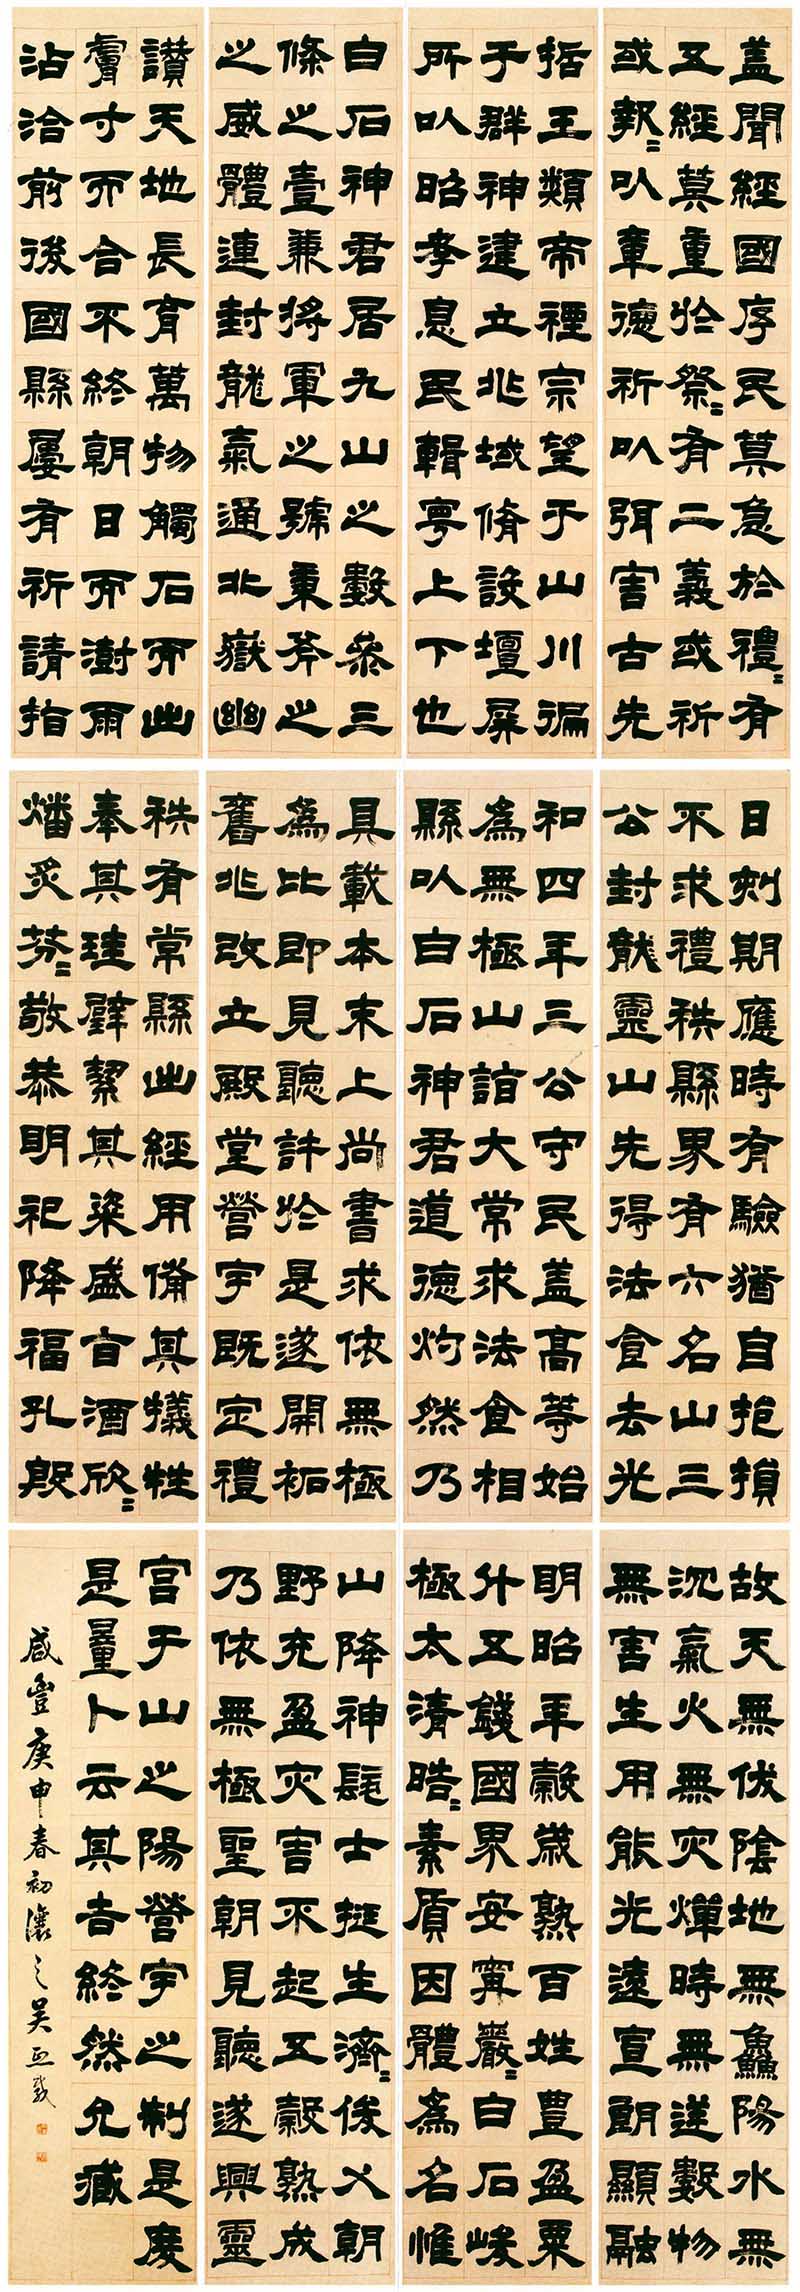 蓋聞經國序民莫急於禮〻有
五經莫重於祭〻有二義或祈
或報〻以章德祈以弭害古先
哲王類帝禋宗望于山川徧
于群神建立兆域脩設壇屏
所以昭孝息民輯寧上下也
白石神君居九山之數參三
條之壹兼將軍之號秉斧之
之威體連封龍氣通北嶽幽
讚天地長育萬物觸石而出
膚寸而合不終朝日而澍雨
沾洽前後國縣屢有祈請指
日刻期應時有驗猶自抱損
不求禮秩縣界有六名山三
公封龍靈山先得法食去光
和四年三公守民蓋高等始
為無極山詣大常求法食相
縣以白石神君道德灼然乃
具載本末上尚書求依無極
為比即見聽許於是遂開祏
舊兆改立殿堂營宇既定禮
秩有常縣出經用備其犧牲
奉其珪璧絜其粢盛旨酒欣〻
燔炙芬〻敬恭明祀降福孔殷
故天無伏陰地無鱻陽水無
沉氣火無灾燀時無逆數物
無害生用能光遠宣朗顯融
明昭年穀歲熟百姓豐盈粟
升五錢國界安寧巖〻白石峻
極太清皓〻素質因體為名惟
山降神髦士挺生濟〻俊乂朝
野充盈灾害不起五穀熟成
乃依無極聖朝見聽遂興靈
宮于山之陽營宇之制是度
是量卜云其吉終然允臧
咸豐庚申春初讓之吴熙載